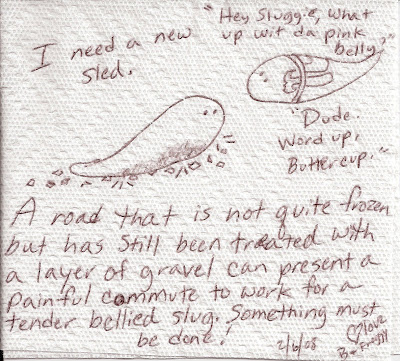 "Hey Sluggie, what
up wit da pink
belly?"
I need a new
sled.
"Dude.
Word up,
Buttercup."
A road that is not quite frozen
but has still been treated with
a layer of gravel can present a
painful commute to work for a
tender bellied slug. Something must
be done!
2/6/08
love